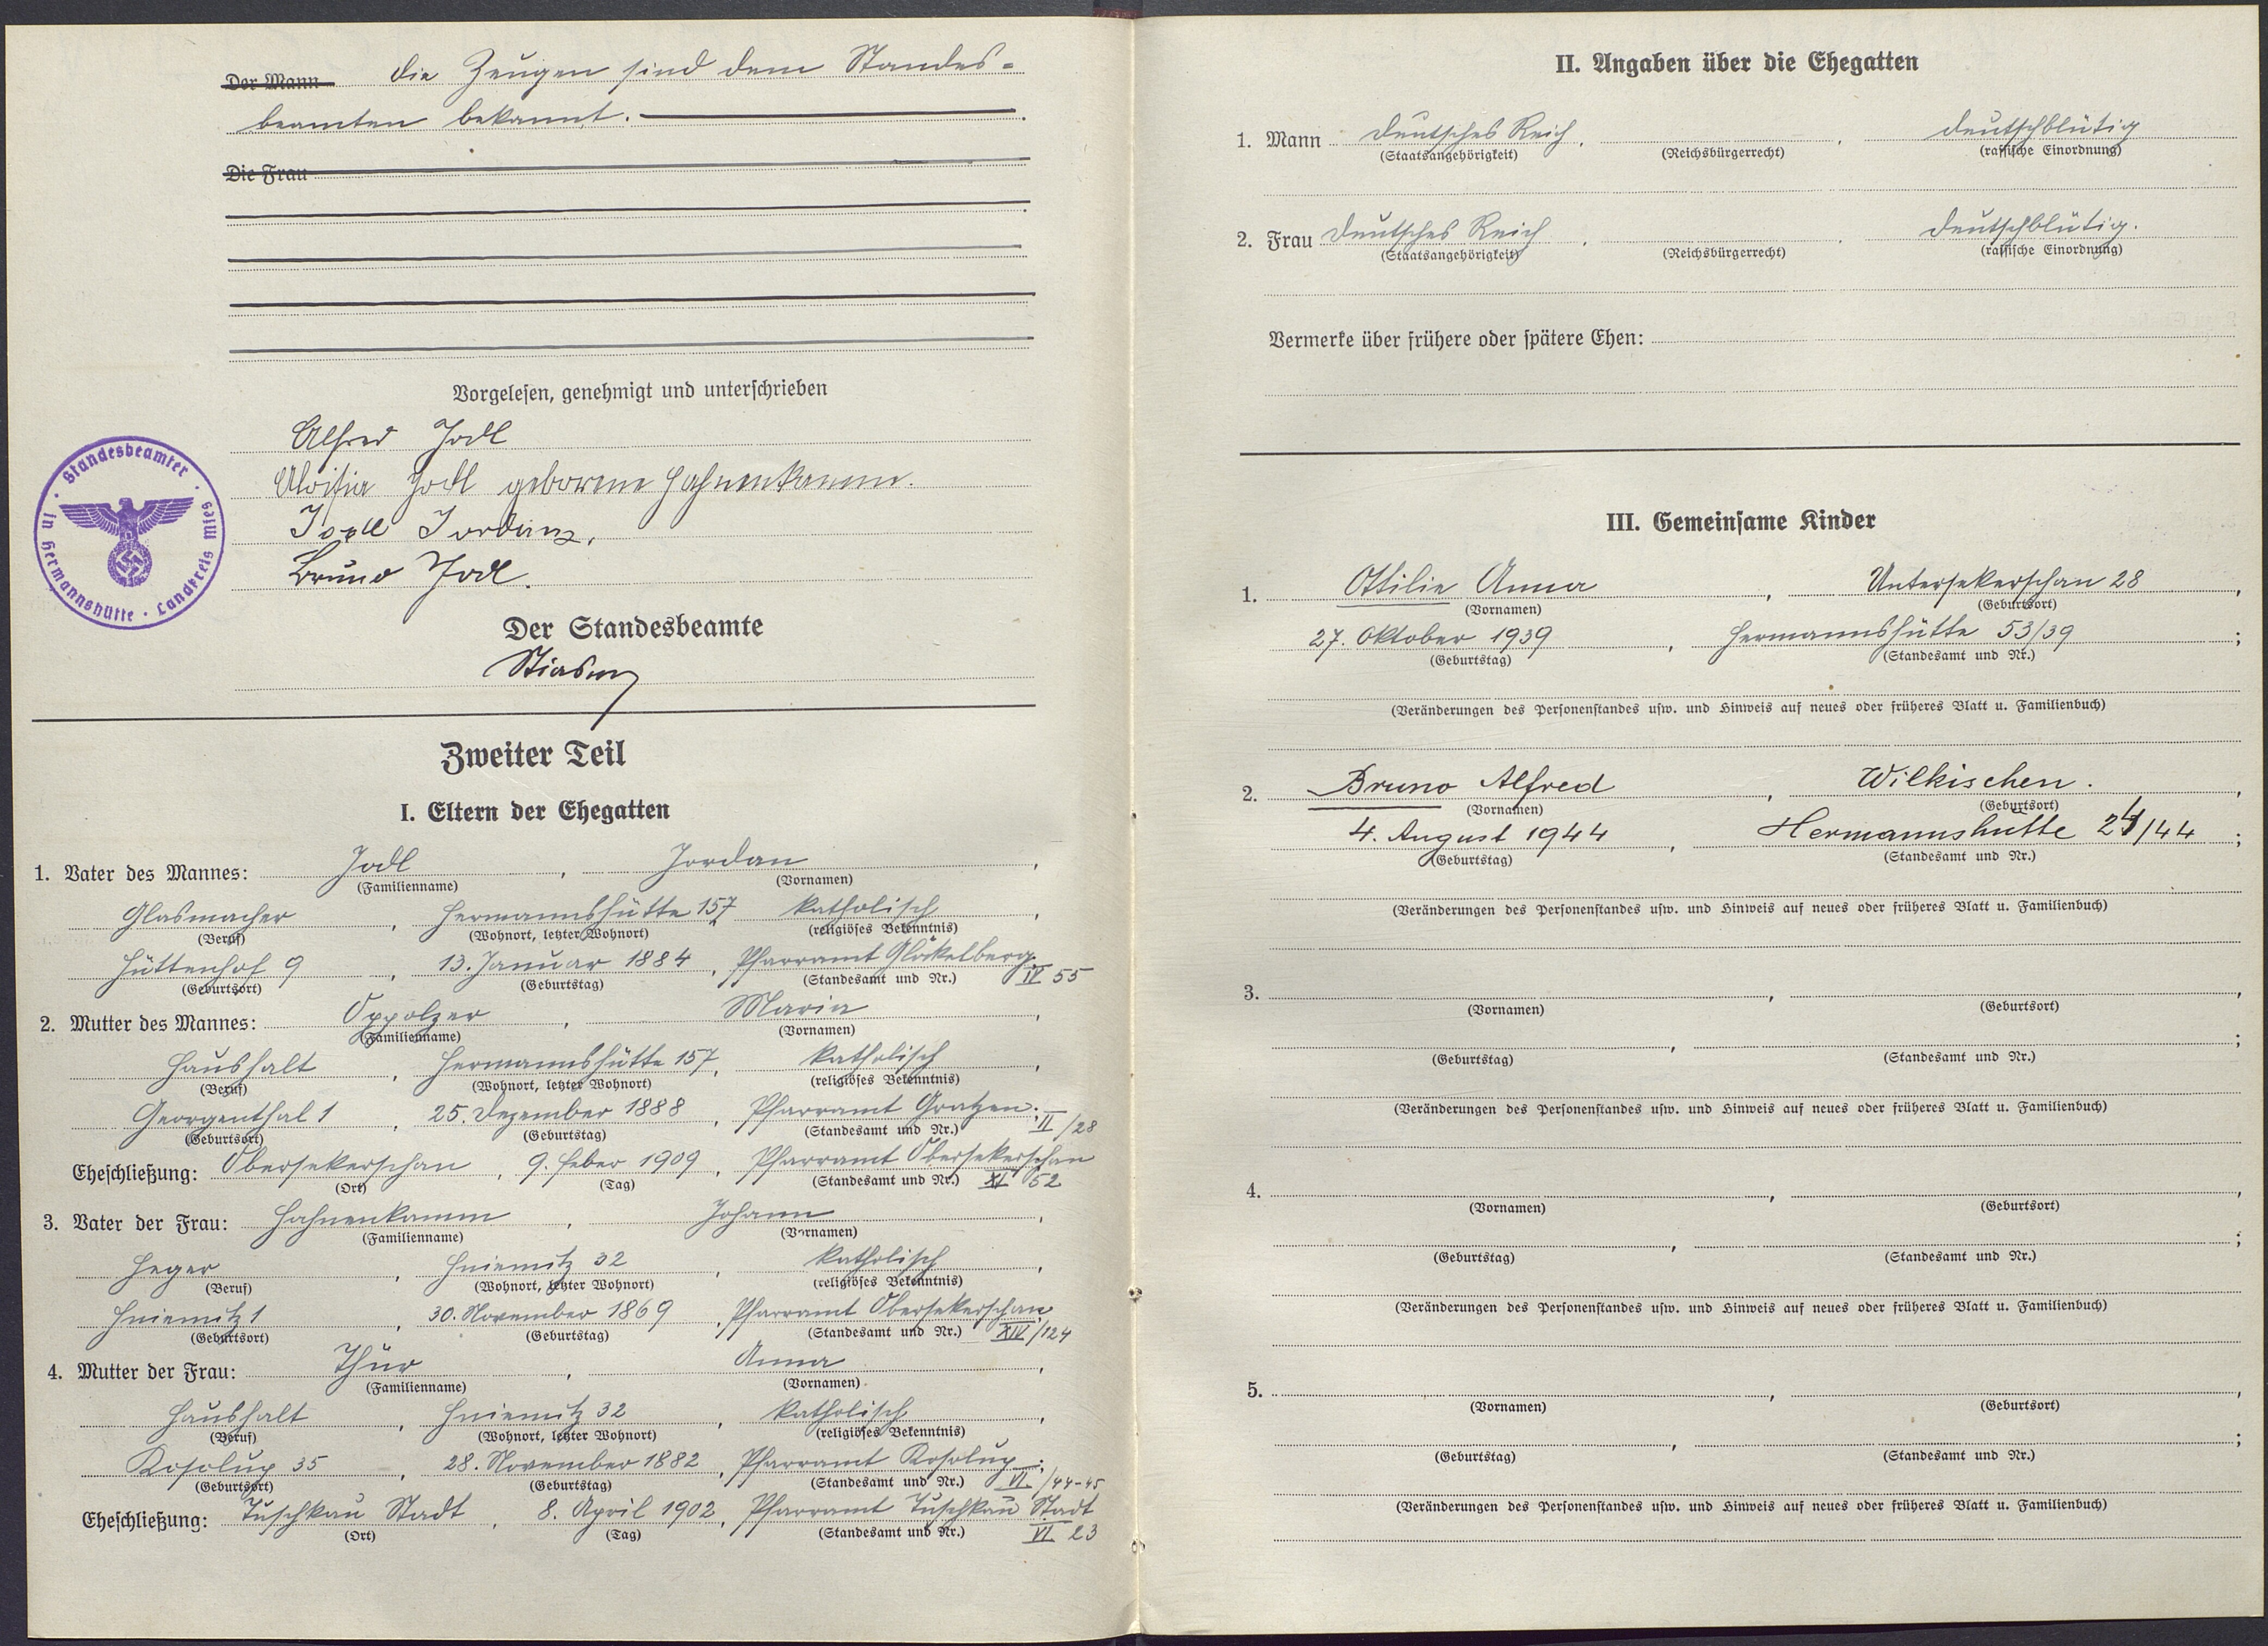 Der Mann die Zeugen sind dem Standes=
beamten bekannt.
Die Frau
Vorgelesen, genehmigt und unterschrieben
Alfred Jodl
Aloisia Jodl geborene Hahnenkamm.
Jodl Jordan.
Bruno Jodl.
Standesbeamter · in Hermannshütte · Landkreis Mies
Der Standesbeamte
Stiasny
Zweiter Teil
I. Eltern der Ehegatten
1. Vater des Mannes: Jodl, Jordan,
(Familienname) (Vornamen)
Glasmacher, Hermannshütte 157 katholisch,
(Beruf) (Wohnort, letzter Wohnort) (religiöses Bekenntnis)
Hüttenhof 9, 13. Januar 1884, Pfarramt Glöckelberg IV 55
(Geburtsort) (Geburtstag) (Standesamt und Nr.)
2. Mutter des Mannes: Oppolzer, Maria,
(Familienname) (Vornamen)
Haushalt, Hermannshütte 157, katholisch,
(Beruf) (Wohnort, letzter Wohnort) (religiöses Bekenntnis)
Georgenthal 1, 25. Dezember 1888, Pfarramt Gratzen; II/28
(Geburtsort) (Geburtstag) (Standesamt und Nr.)
Eheschließung: Obersekerschan, 9. Feber 1909, Pfarramt Obersekerschan XI 52
(Ort) (Tag) (Standesamt und Nr.)
3. Vater der Frau: Hahnenkamm, Johann,
(Familienname) (Vornamen)
Heger, Hniemitz 32, katholisch,
(Beruf) (Wohnort, letzter Wohnort) (religiöses Bekenntnis)
Hniemitz 1, 30. November 1869, Pfarramt Obersekerschan XIV/124
(Geburtsort) (Geburtstag) (Standesamt und Nr.)
4. Mutter der Frau: Thür, Anna,
(Familienname) (Vornamen)
Haushalt, Hniemitz 32, katholisch,
(Beruf) (Wohnort, letzter Wohnort) (religiöses Bekenntnis)
Kosolup 35, 28. November 1882, Pfarramt Kosolup; VI/44-45
(Geburtsort) (Geburtstag) (Standesamt und Nr.)
Eheschließung: Tuschkau Stadt, 8. April 1902, Pfarramt Tuschkau Stadt VI 23
(Ort) (Tag) (Standesamt und Nr.)
II. Angaben über die Ehegatten
1. Mann Deutsches Reich, , deutschblütig
(Staatsangehörigkeit) (Reichsbürgerrecht) (rassische Einordnung)
2. Frau Deutsches Reich, , deutschblütig.
(Staatsangehörigkeit) (Reichsbürgerrecht) (rassische Einordnung)
Vermerke über frühere oder spätere Ehen:
III. Gemeinsame Kinder
1. Ottilie Anna, Untersekerschan 28,
(Vornamen) (Geburtsort)
27. Oktober 1939, Hermannshütte 53/39;
(Geburtstag) (Standesamt und Nr.)
(Veränderungen des Personenstandes usw. und Hinweis auf neues oder früheres Blatt u. Familienbuch)
2. Bruno Alfred, Wilkischen.,
(Vornamen) (Geburtsort)
4. August 1944, Hermannshütte 24/44;
(Geburtstag) (Standesamt und Nr.)
(Veränderungen des Personenstandes usw. und Hinweis auf neues oder früheres Blatt u. Familienbuch)
3. , ,
(Vornamen) (Geburtsort)
, ;
(Geburtstag) (Standesamt und Nr.)
(Veränderungen des Personenstandes usw. und Hinweis auf neues oder früheres Blatt u. Familienbuch)
4. , ,
(Vornamen) (Geburtsort)
, ;
(Geburtstag) (Standesamt und Nr.)
(Veränderungen des Personenstandes usw. und Hinweis auf neues oder früheres Blatt u. Familienbuch)
5. , ,
(Vornamen) (Geburtsort)
, ;
(Geburtstag) (Standesamt und Nr.)
(Veränderungen des Personenstandes usw. und Hinweis auf neues oder früheres Blatt u. Familienbuch)